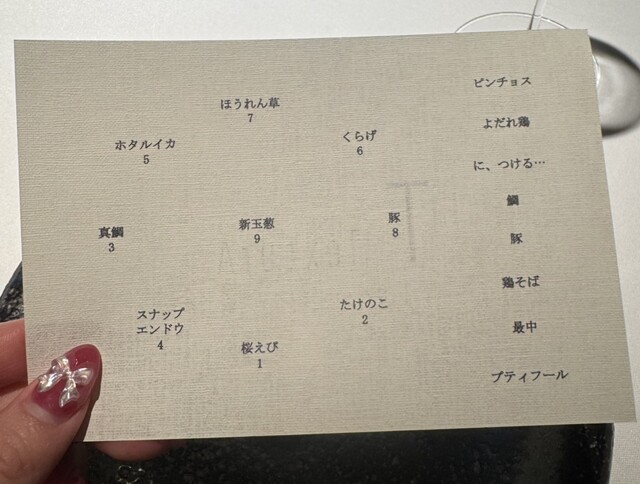 ほうれん草
7
ホタルイカ
5
くらげ
6
真鯛
3
新玉葱
9
豚
8
スナップ
エンドウ
4
たけのこ
2
桜えび
1
ピンチョス
よだれ鶏
に、つける…
鯛
豚
鶏そば
最中
プティフール